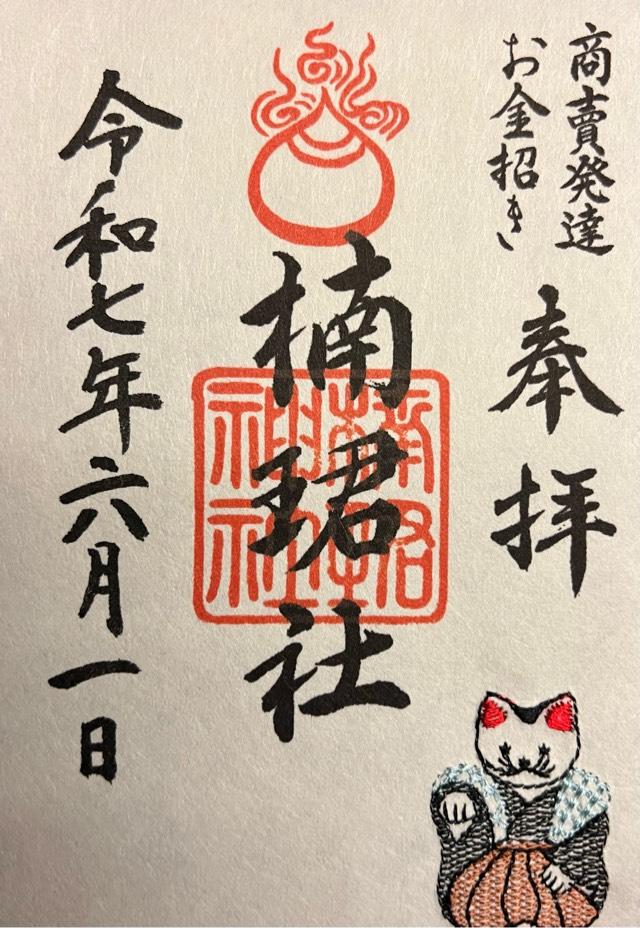 商賣発達
お金招き
奉拝
楠珺社
令和七年六月一日